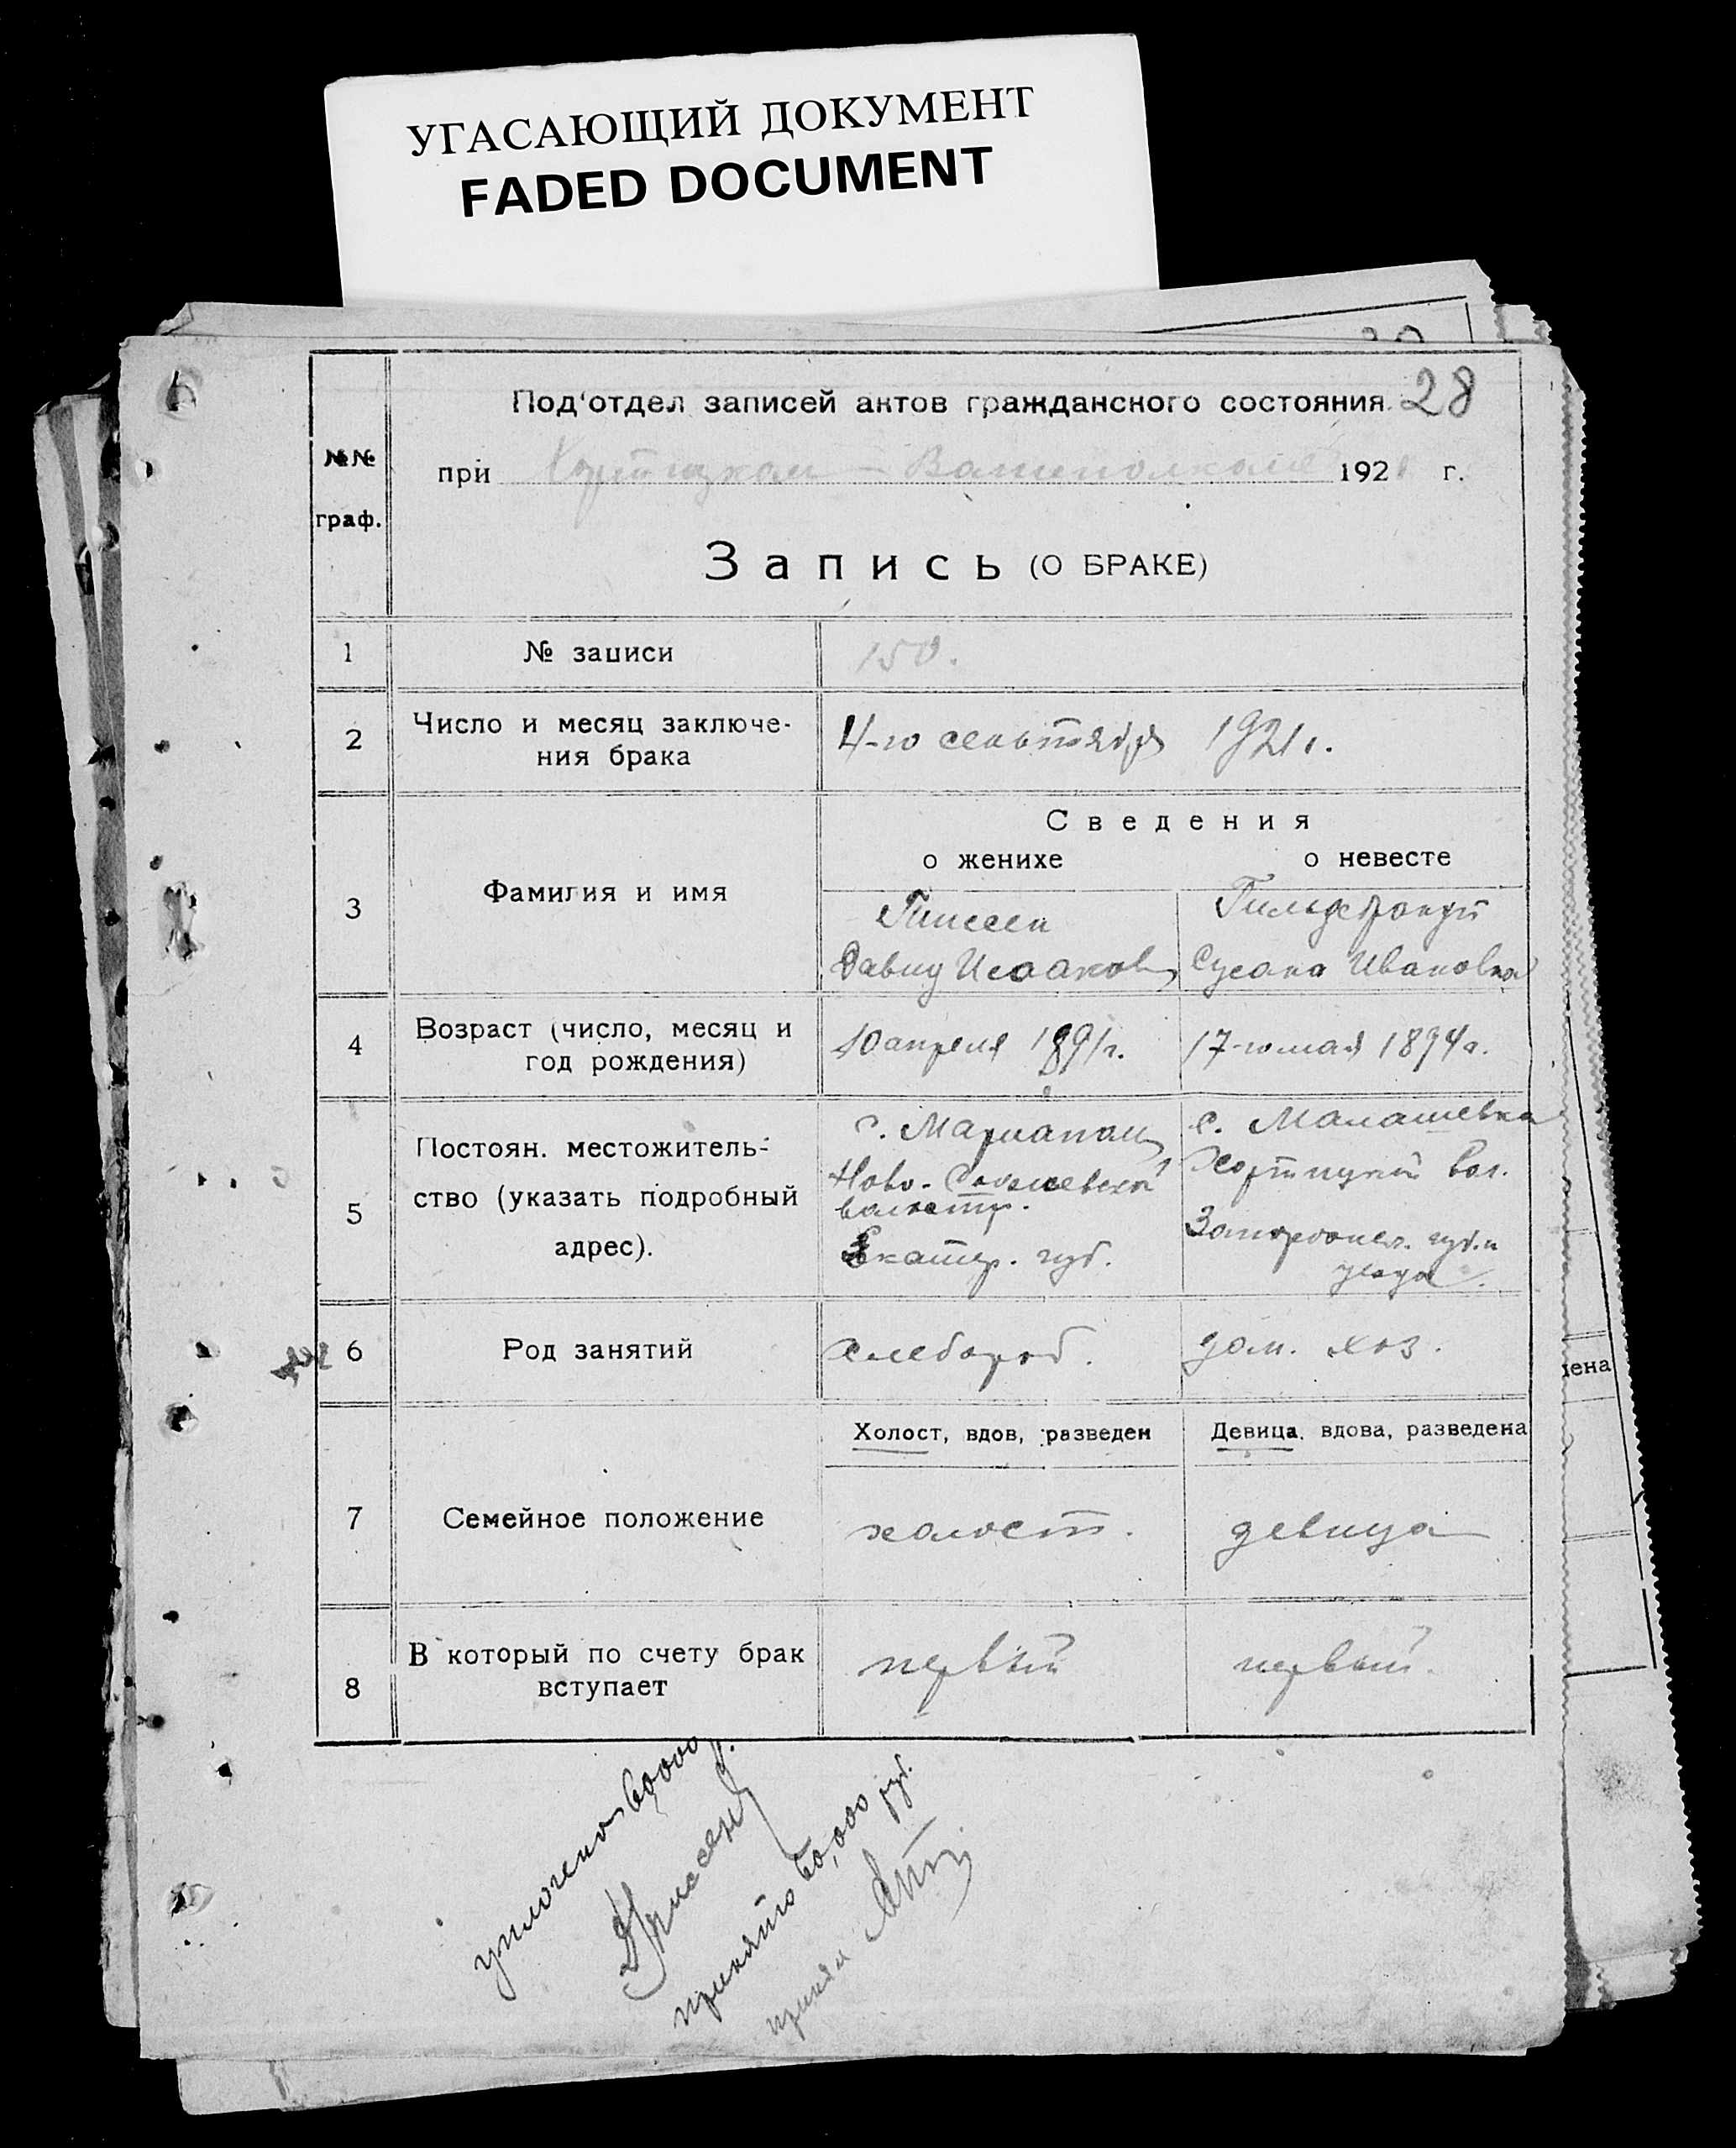 УГАСАЮЩИЙ ДОКУМЕНТ
FADED DOCUMENT
28
Под'отдел записей актов гражданского состояния
№№ граф.
при Хортицком - 1921 г.
Запись (О БРАКЕ)
1 № записи 150.
2 Число и месяц заключе-
ния брака
4-го сентября 1921 г.
Сведения
о женихе о невесте
3 Фамилия и имя
Гиссен Гильдебрандт
Давид Исааков Сусана Ивановна
4 Возраст (число, месяц и
год рождения)
10 апреля 1891 г. 17-го мая 1894 г.
5 Постоян. местожитель-
ство (указать подробный
адрес).
с.
Ново-
волости.
Екатер. губ.
с. Малашевка
Хортицкой вол.
губ. и
уезда.
6 Род занятий хлебороб. дом. хоз.
Холост, вдов, разведен Девица, вдова, разведена
7 Семейное положение холост. девица
8 В который по счету брак
вступает
первый первый.
уплочено 60000 р.
принято 60,000 руб.
принял
дена